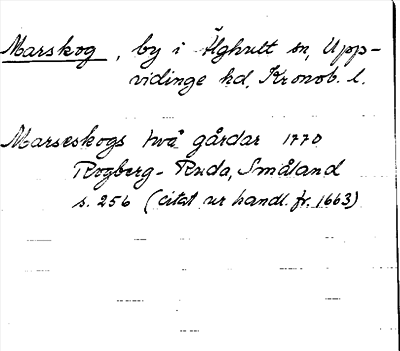 Marskog, by i Älghult sn, Upp-
vidinge hd, Kronob. l.
Marseskogs två gårdar 1770
Rogberg-Ruda, Småland
s. 256 (citat ur handl. fr. 1663)